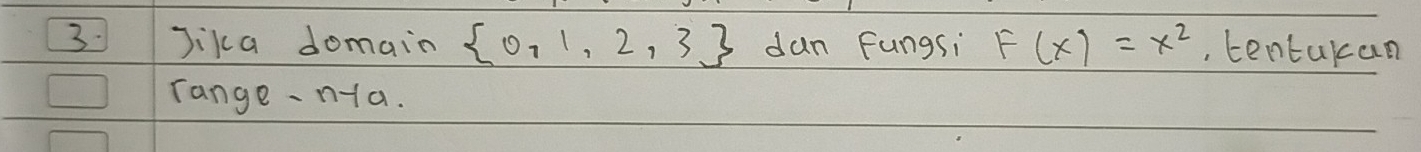 3. Jika domain {0, 1, 2, 3} dan Fungsi F(x) = x², tentukan
range-nya.